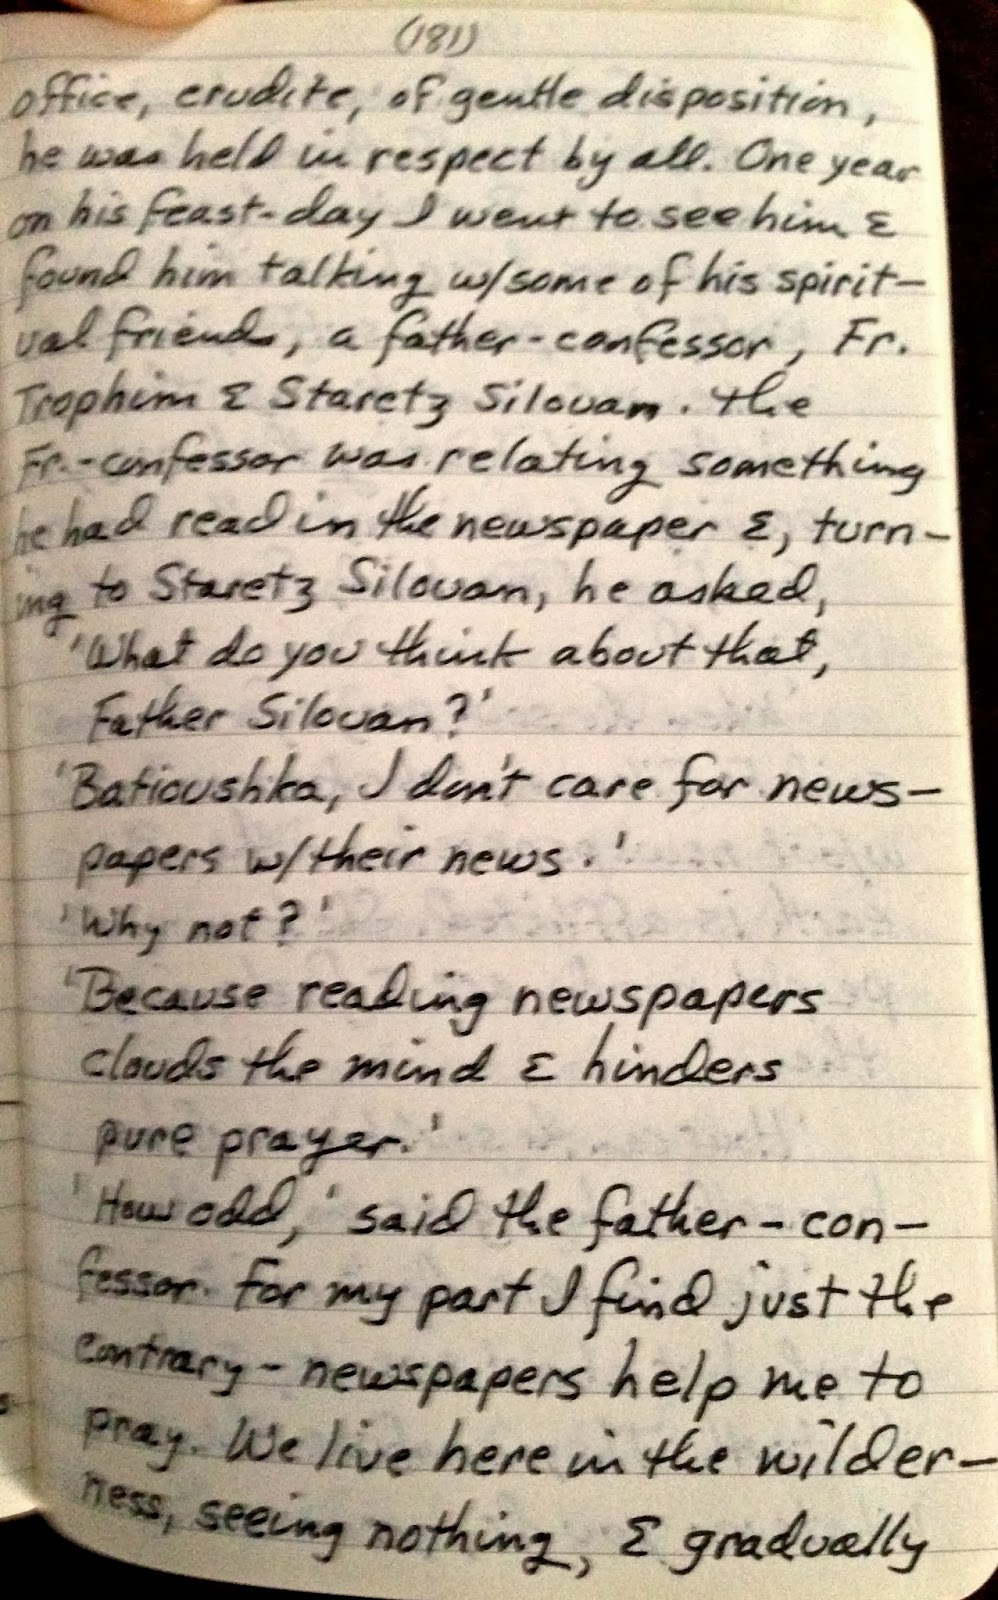 (181)
office, erudite, of gentle disposition,
he was held in respect by all. One year
on his feast-day I went to see him &
found him talking w/some of his spirit-
ual friends, a father-confessor, Fr.
Trophim & Staretz Silouan. The
Fr.-confessor was relating something
he had read in the newspaper &, turn-
ing to Staretz Silouan, he asked,
'What do you think about that,
Father Silouan?'
'Batioushka, I don't care for news-
papers w/their news.'
'Why not?'
'Because reading newspapers
clouds the mind & hinders
pure prayer.'
'How odd,' said the father-con-
fessor. For my part I find just the
contrary - newspapers help me to
pray. We live here in the wilder-
ness, seeing nothing, & gradually